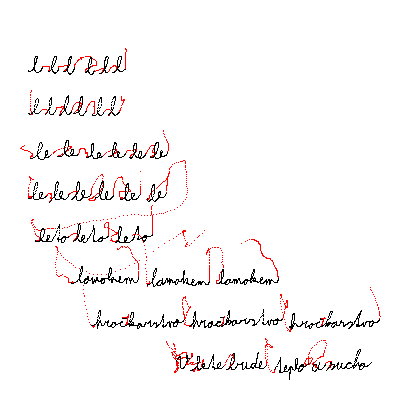 l l l l l l
l l l l l l
le le le le le le
le le le le le le
leto leto leto
lamoken lamoken lamoken
hrackarstvo hrackarstvo hrackarstvo
V lete bude teplo a sucho